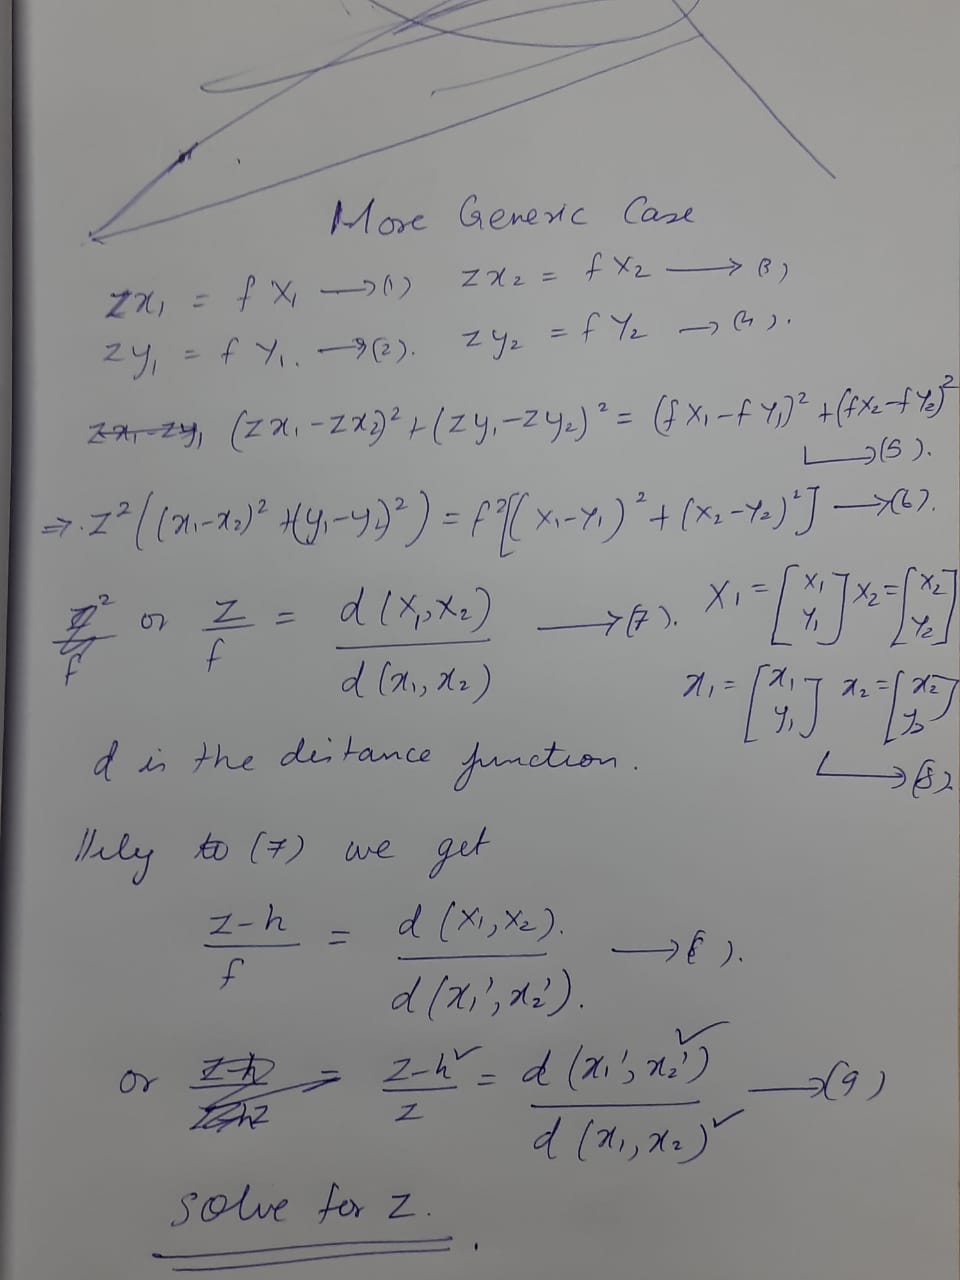 More Generic Case
zx₁ = f X₁ → (1) zx₂ = f X₂ → (3)
zy₁ = f Y₁. → (2). zy₂ = f Y₂ → (4).
zx₁-zy₁ (zx₁-zx₂)² + (zy₁-zy₂)² = (fX₁-fY₁)² + (fX₂-fY₂)²
→ (5).
⇒. z²((x₁-x₂)² + (y₁-y₂)²) = f²[(X₁-Y₁)² + (X₂-Y₂)²] → (6).
or z/f = d(X₁,X₂)/d(x₁,x₂) → (7). X₁ = [X₁ Y₁] X₂ = [X₂ Y₂]
x₁ = [x₁ y₁] x₂ = [x₂ y₂]
→ (8)
d is the distance function.
lllly to (7) we get
z-h/f = d(X₁,X₂)./d(x₁',x₂'). → (8).
or z-h/z = d(x₁',x₂')/d(x₁,x₂) → (9)
solve for z.